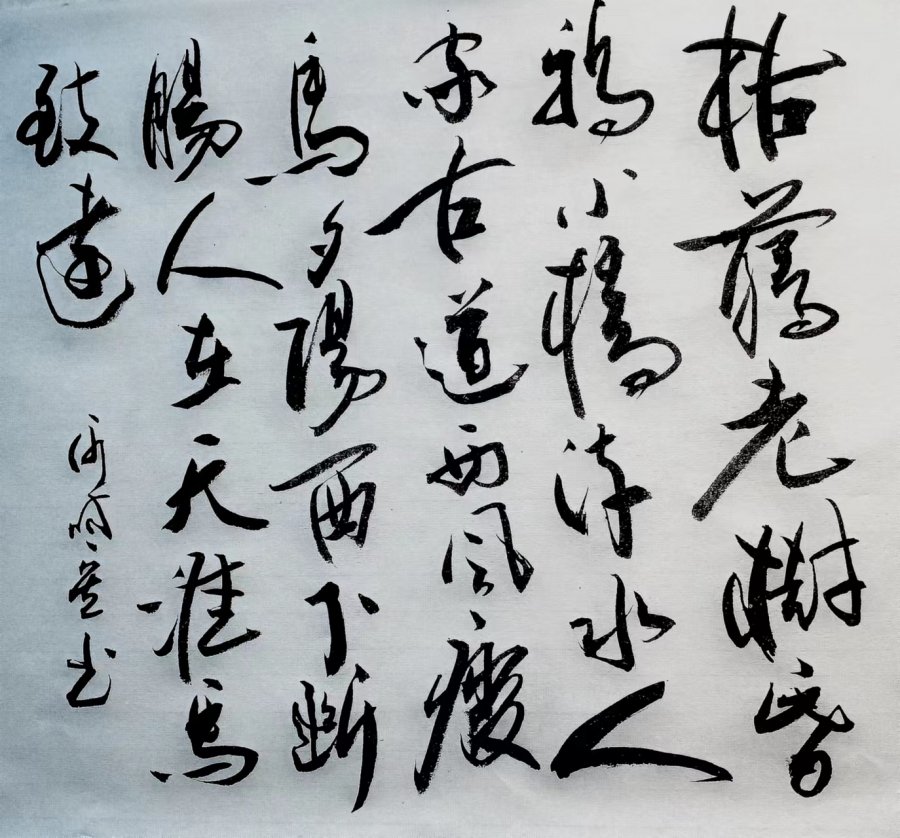 枯藤老樹昏
鴉小橋流水人
家古道西風瘦
馬夕陽西下断
腸人在天涯馬
致遠
书